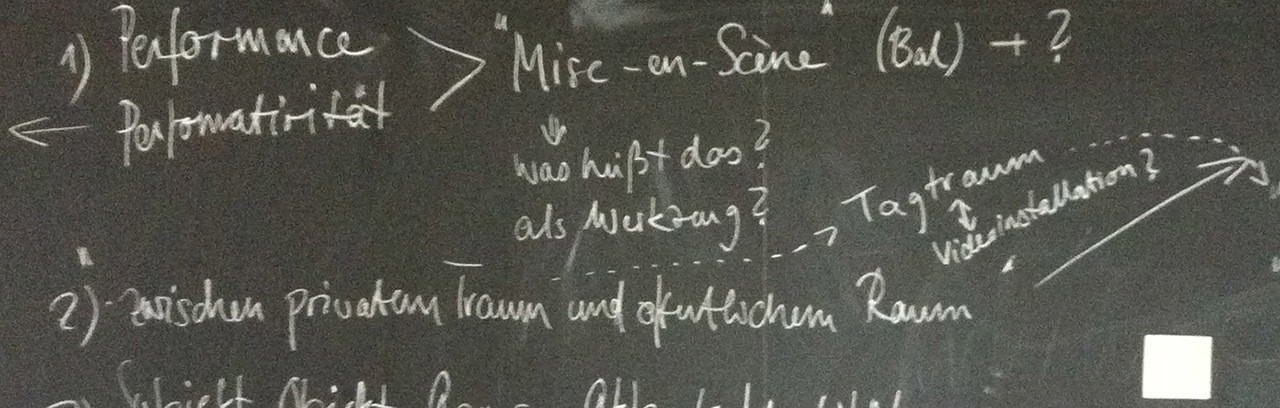 1) Performance > "Mise-en-Scène" (Bal) + ?
← Perfomativität
↓
was heißt das?
als Werkzeug?
Tagtraum
↕
Videoinstallation?
2) zwischen privatem Traum und öffentlichem Raum
Subjekt Objekt